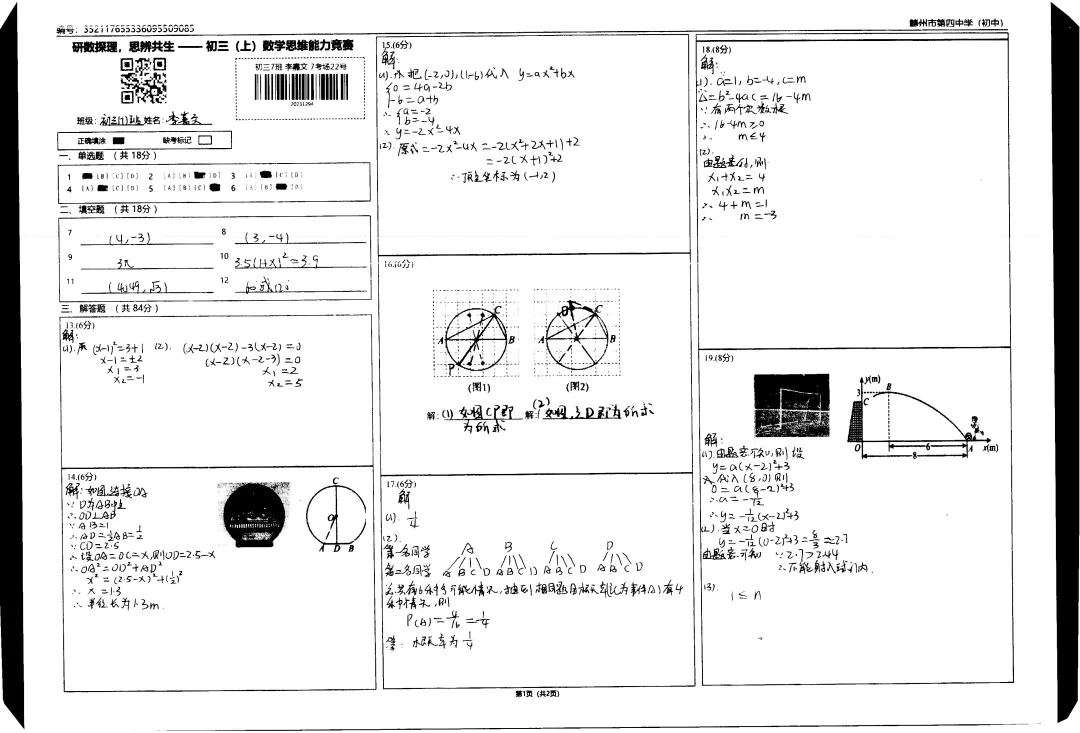 编号: 352117655336095509085
赣州市第四中学（初中）
研数探理，思辨共生 —— 初三（上）数学思维能力竞赛
初三7班 李嘉文 7考场22号
20231294
班级: 初三(7)班 姓名: 李嘉文
正确填涂 缺考标记
一、单选题 （共18分）
1 [B] [C] [D] 2 [A] [B] [D] 3 [A] [C] [D]
4 [A] [C] [D] 5 [A] [B] [C] 6 [A] [B] [D]
二、填空题 （共18分）
7 (4,-3) 8 (3,-4)
9 3π 10 3.5(1+x)²=3.9
11 12
三、解答题 （共84分）
13.(6分)
解:
(1). 原 (x-1)²=3+1 (2). (x-2)(x-2)-3(x-2)=0
x-1=±2 (x-2)(x-2-3)=0
x₁=3 x₁=2
x₂=-1 x₂=5
14.(6分)
解: 如图,连接OA
∵ D为AB中点
∴ OD⊥AB
∵ AB=1
∴ AD=½AB=½
∵ CD=2.5
∴ 设OA=OC=x,则OD=2.5-x
∴ OA²=OD²+AD²
x²=(2.5-x)²+(½)²
∴ x=1.3
∴ 半径长为1.3m.
C
O
A D B
15.(6分)
解:
(1). 把(-2,0),(1,-6)代入 y=ax²+bx
{0=4a-2b
-6=a+b
∴ {a=-2
b=-4
∴ y=-2x²-4x
(2). 原式=-2x²-4x=-2(x²+2x+1)+2
=-2(x+1)²+2
∴ 顶点坐标为(-1,2)
16.(6分)
C
A B
P
(图1)
D C
A B
(图2)
解: (1) 如图CP即为所求
解: (2) 如图, D即为所求
17.(6分)
解
(1). ¼
(2).
第一名同学 A B C D
第二名同学 A B C D A B C D A B C D A B C D
P(A)=4/16=¼
答: 概率为¼
18.(8分)
解:
(1). a=1, b=-4, c=m
△=b²-4ac=16-4m
∵ 有两个实数根
∴ 16-4m≥0
∴ m≤4
(2).
由题意得,则
x₁+x₂=4
x₁x₂=m
∴ 4+m=1
∴ m=-3
19.(8分)
y(m)
3 B
C
O 6 A x(m)
8
解:
(1). 由题意可知,则设
y=a(x-2)²+3
代入(8,0)则
0=a(8-2)²+3
∴ a=-1/12
∴ y=-1/12(x-2)²+3
(2). 当x=0时
y=-1/12(0-2)²+3=8/3≈2.7
由题意可知 ∵ 2.7>2.44
∴ 不能射入球门内.
(3).
1≤n
第1页 (共2页)